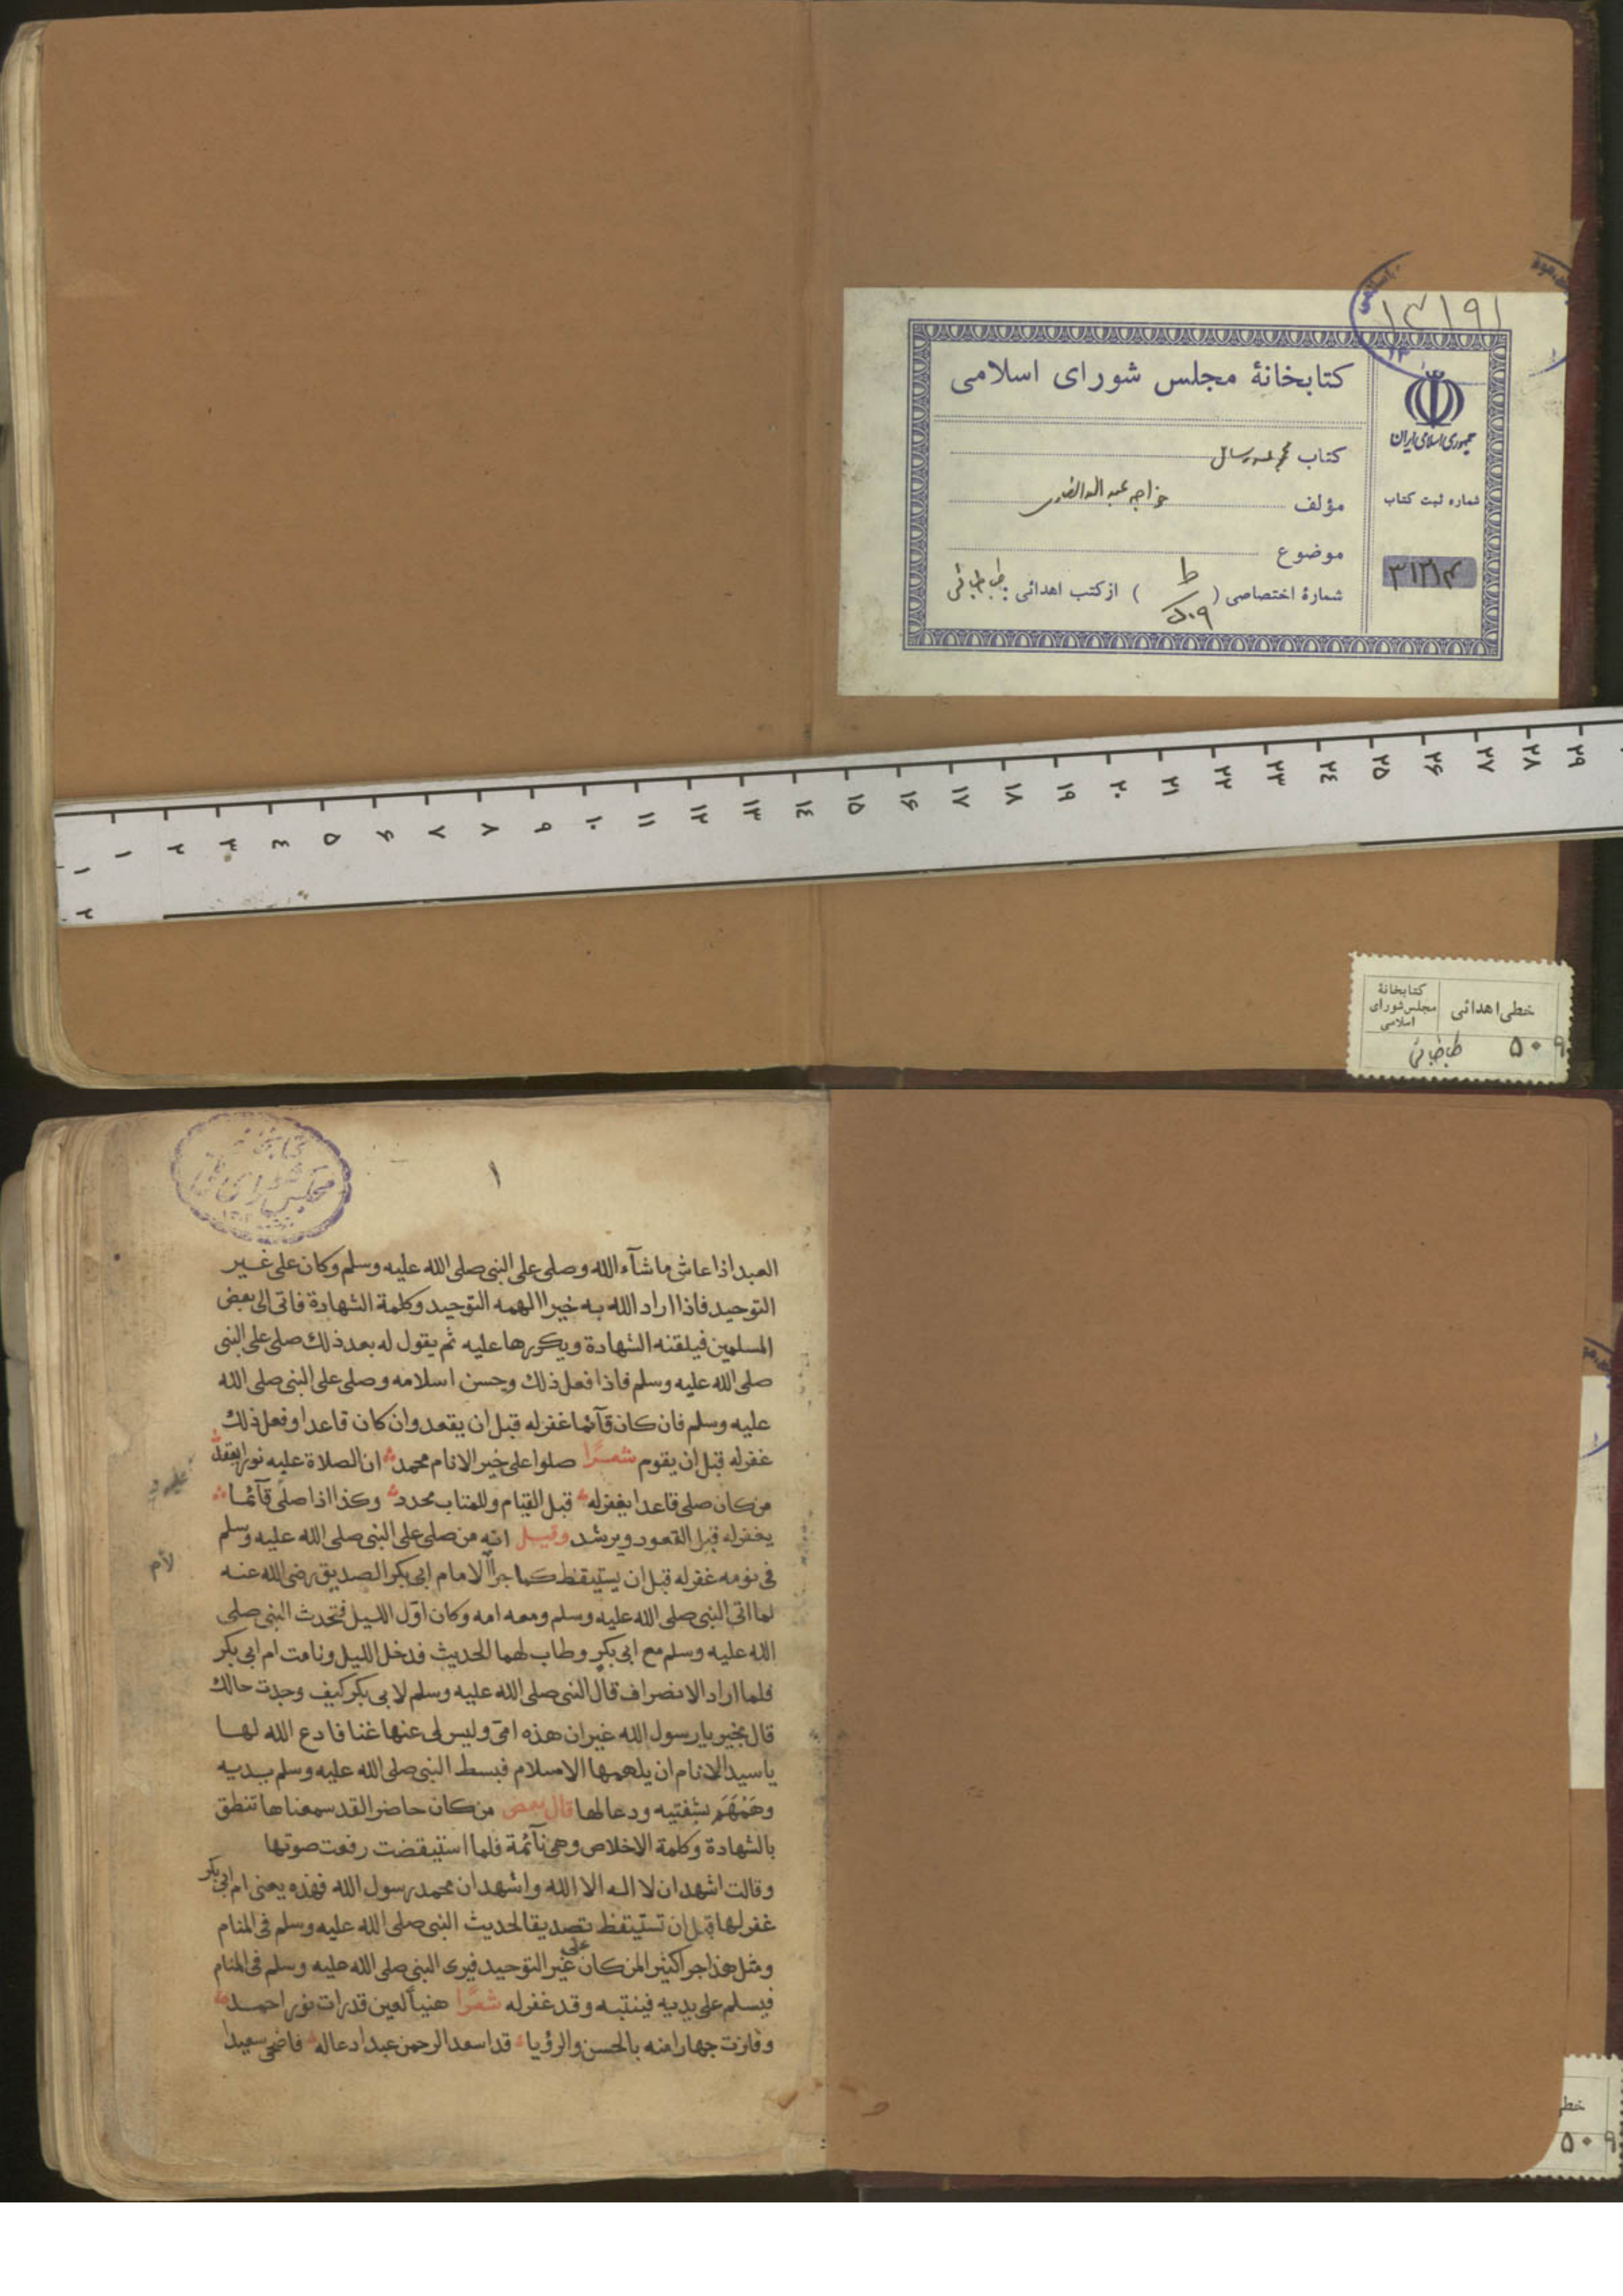 ۱۳۱۹۱
کتابخانهٔ مجلس شورای اسلامی
جمهوری اسلامی ایران
کتاب مجموعه رسائل
مؤلف خواجه عبدالله انصاری
موضوع
شماره ثبت کتاب
شمارهٔ اختصاصی ( ط ۵۰۹ ) از کتب اهدائی : طباطبائی
۱ ۲ ۳ ٤ ۵ ۶ ۷ ۸ ۹ ۱۰ ۱۱ ۱۲ ۱۳ ۱٤ ۱۵ ۱۶ ۱۷ ۱۸ ۱۹ ۲۰ ۲۱ ۲۲ ۲۳ ۲٤ ۲۵ ۲۶ ۲۷ ۲۸ ۲۹
۱
۲
خطی اهدائی
کتابخانهٔ
مجلس شورای
اسلامی
۵۰۹ طباطبائی
۱
العبد اذا عاش ما شآء الله وصلى على النبى صلى الله عليه وسلم وكان على غير
التوحيد فاذا اراد الله به خيرا الهمه التوحيد وكلمة الشهادة فاتى الى بعض
المسلمين فيلقنه الشهادة ويكررها عليه ثم يقول له بعد ذلك صلى على النبى
صلى الله عليه وسلم فاذا فعل ذلك وحسن اسلامه وصلى على النبى صلى الله
عليه وسلم فان كان قآئما غفر له قبل ان يقعد وان كان قاعدا وفعل ذلك
غفر له قبل ان يقوم شعرًا صلوا على خير الانام محمد ان الصلاة عليه نور يعقد
من كان صلى قاعدا يغفر له قبل القيام وللمتاب محدد وكذا اذا صلى قآئما
يغفر له قبل القعود ويرشد وقيل انه من صلى على النبى صلى الله عليه وسلم
فى نومه غفر له قبل ان يستيقظ كما جرا الامام ابى بكر الصديق رضى الله عنه
لأم
لما اتى النبى صلى الله عليه وسلم ومعه امه وكان اول الليل فتحدث النبى صلى
الله عليه وسلم مع ابى بكر وطاب لهما الحديث فدخل الليل ونامت ام ابى بكر
فلما اراد الانصراف قال النبى صلى الله عليه وسلم لابى بكر كيف وجدت حالك
قال بخير يا رسول الله غير ان هذه امى وليس لى عنها غنا فادع الله لها
يا سيد الانام ان يلهمها الاسلام فبسط النبى صلى الله عليه وسلم يديه
وهَمْهَمَ بشفتيه ودعا لها قال بعض من كان حاضرا لقد سمعناها تنطق
بالشهادة وكلمة الاخلاص وهى نآئمة فلما استيقضت رفعت صوتها
وقالت اشهد ان لا اله الا الله واشهد ان محمد رسول الله فهذه يعنى ام ابى بكر
غفر لها قبل ان تستيقظ تصديقا لحديث النبى صلى الله عليه وسلم فى المنام
ومثل هذا جرا كثيرا لمن كان على غير التوحيد فيرى النبى صلى الله عليه وسلم فى المنام
فيسلم على يديه فينتبه وقد غفر له شعرًا هنيأ لعين قد رات نور احمد
وفازت جهارا منه بالحسن والرؤيا قد اسعد الرحمن عبدا دعا له فاضحى سعيدا
خطی
۵۰۹